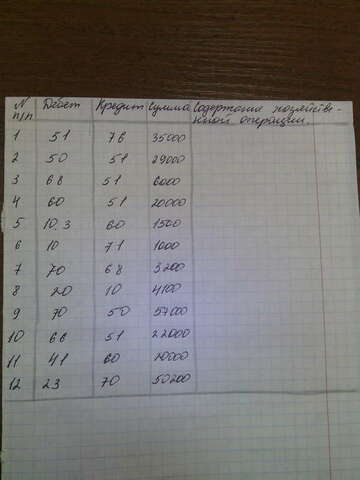 N п/п Дебет Кредит Сумма Содержание хозяйстве-
нной операции.
1 51 76 35000
2 50 51 24000
3 68 51 6000
4 60 51 20000
5 10.3 60 1500
6 10 71 1000
7 70 68 3200
8 20 10 4100
9 70 50 57000
10 66 51 22000
11 41 60 20000
12 23 70 50200